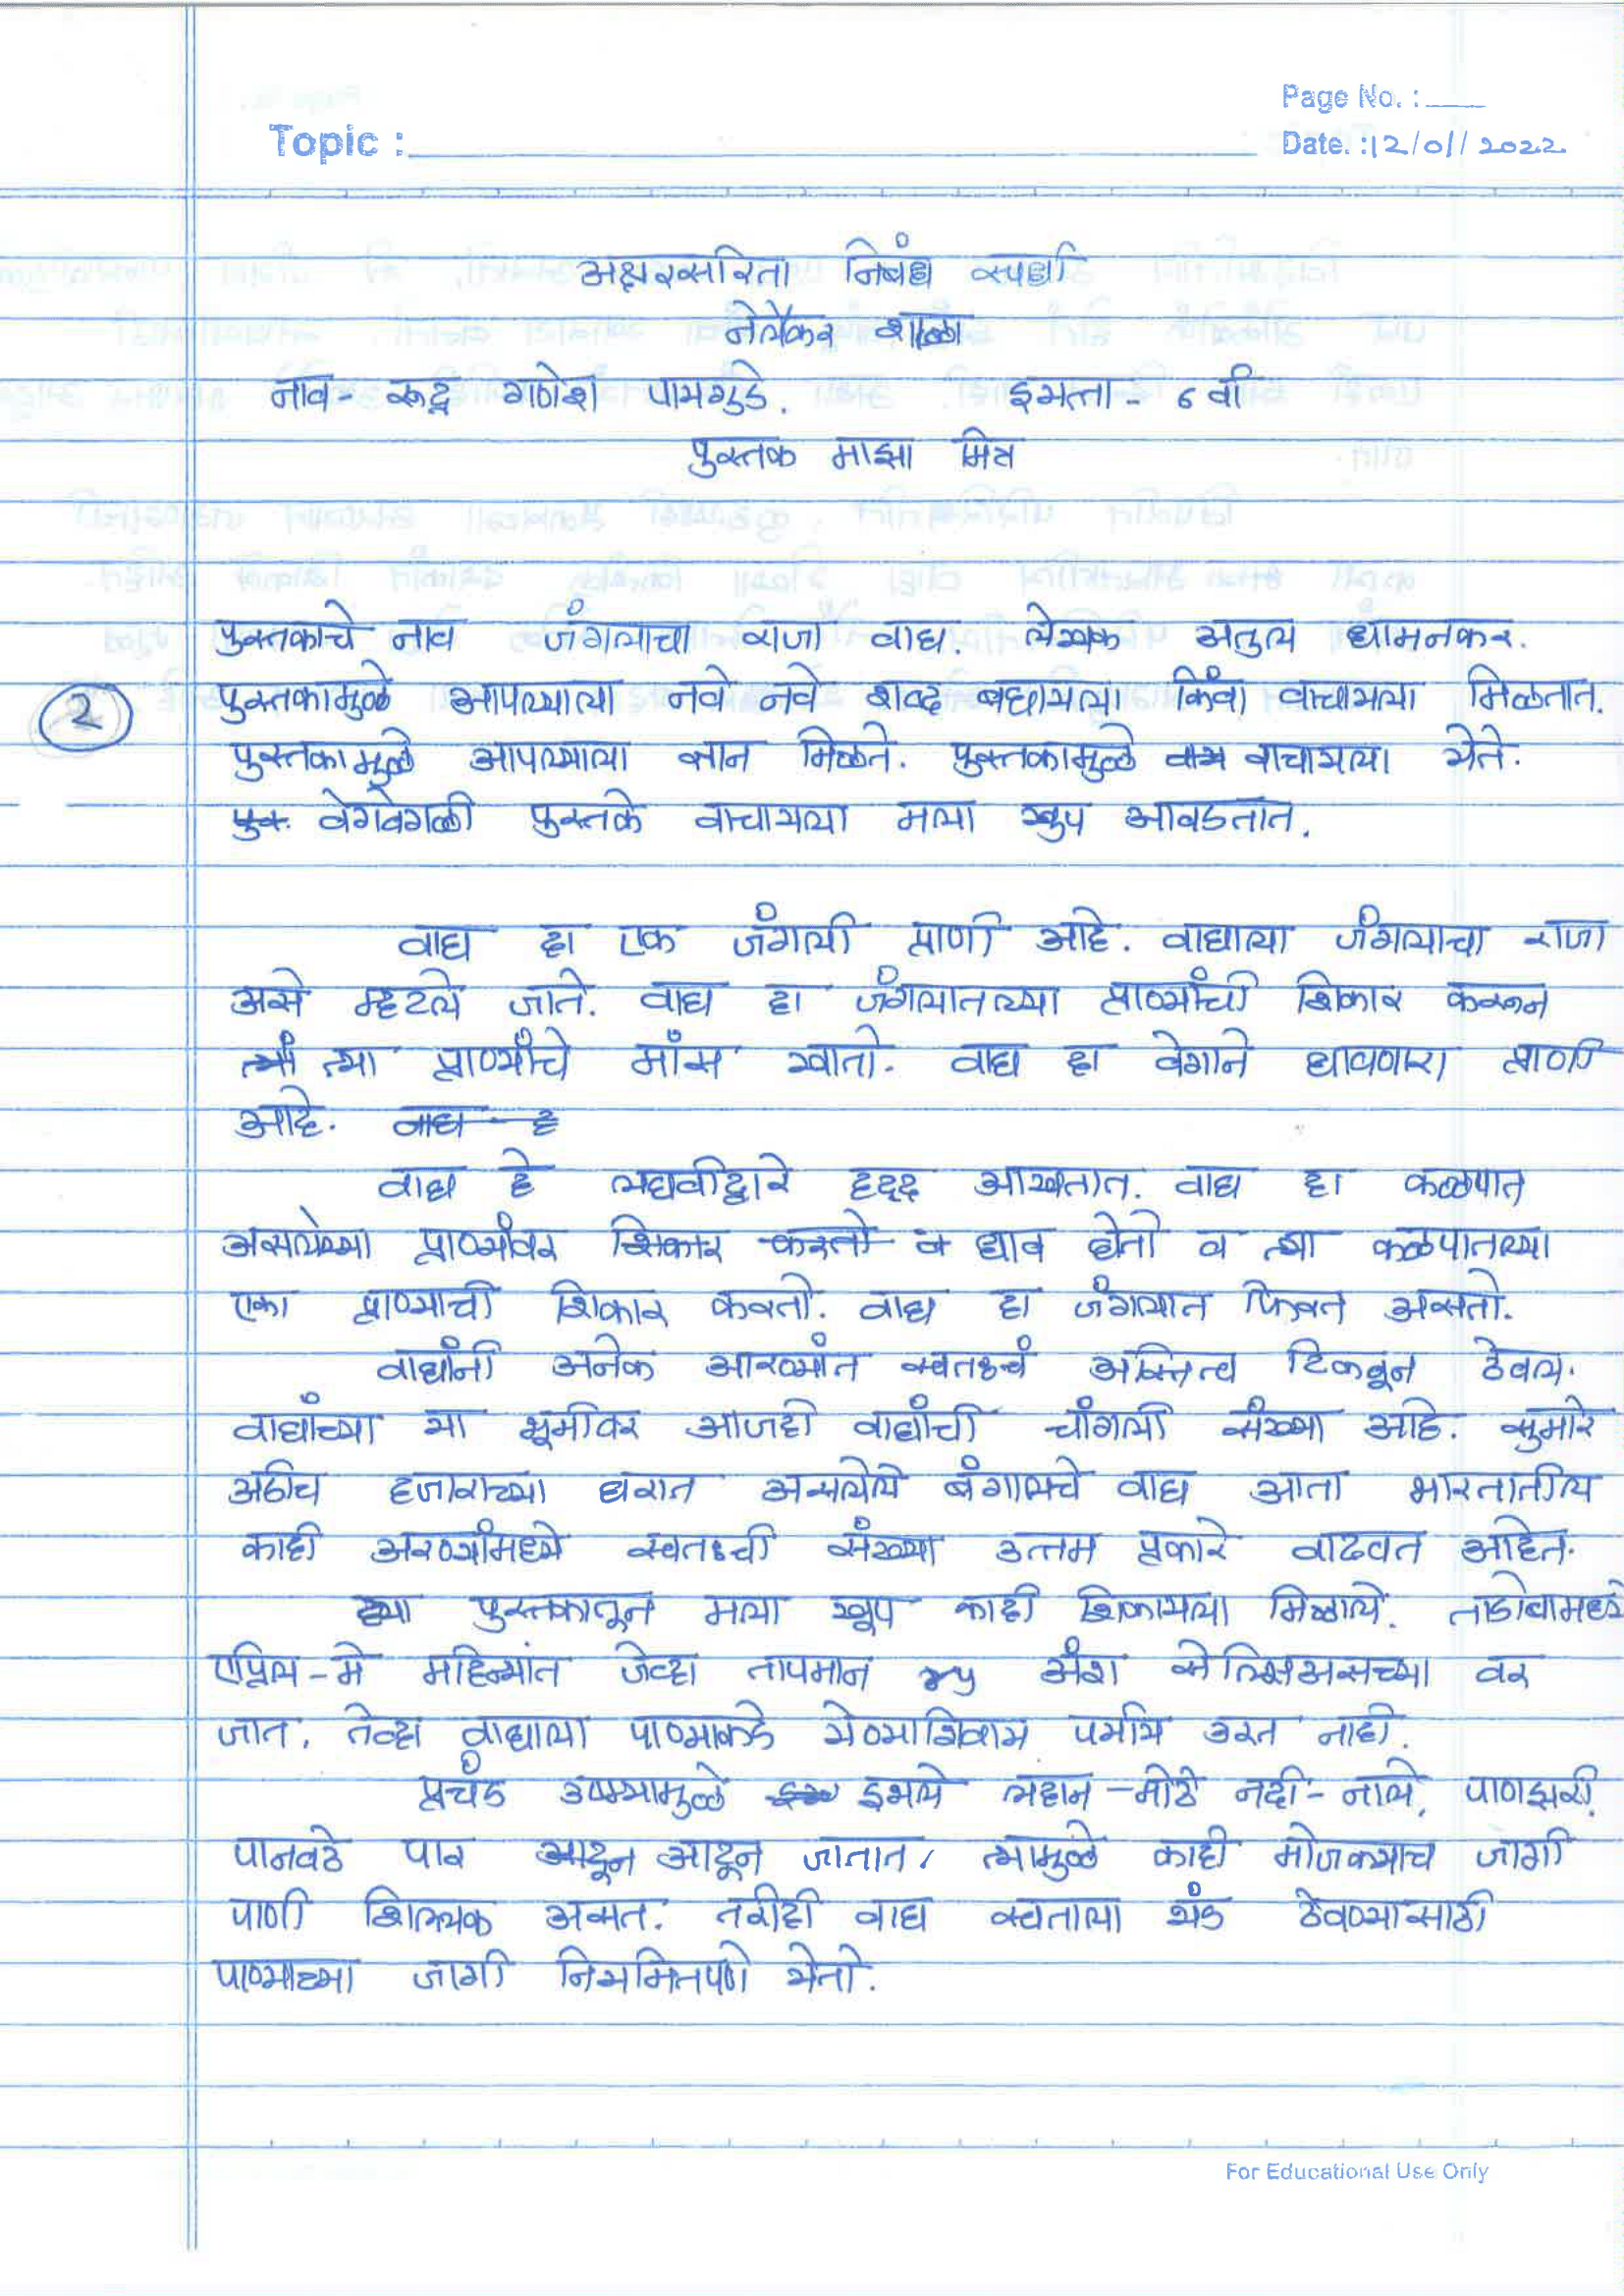 Page No. :
Topic :
Date. : 12/01/2022
अक्षरसरिता निबंध स्पर्धा
नेलेकर शाळा
नाव - रूद्र गणेश पायगुडे. इयत्ता - ६ वी
पुस्तक माझा मित्र
पुस्तकाचे नाव जंगलाचा राजा वाघ. लेखक अतुल धामनकर.
2
पुस्तकामुळे आपल्याला नवे नवे शब्द बघायला किंवा वाचायला मिळतात.
पुस्तकामुळे आपल्याला ज्ञान मिळते. पुस्तकामुळे वाचायला येते.
वेगवेगळी पुस्तके वाचायला मला खुप आवडतात.
वाघ हा एक जंगली प्राणी आहे. वाघाला जंगलाचा राजा
असे म्हटले जाते. वाघ हा जंगलातल्या प्राण्यांची शिकार करून
त्या प्राण्यांचे मांस खातो. वाघ हा वेगाने धावणारा प्राणी
आहे. वाघ ह
वाघ हे लघवीद्वारे हद्द आखतात. वाघ हा कळपात
असलेल्या प्राण्यांवर शिकार करतो व धाव घेतो व त्या कळपातल्या
एका प्राण्याची शिकार करतो. वाघ हा जंगलात फिरत असतो.
वाघांनी अनेक अारण्यांत स्वतःचं अस्तित्व टिकवून ठेवलं.
वाघांच्या या भूमीवर आजही वाघांची चांगली संख्या आहे. सुमारे
अडीच हजाराच्या घरात असलेले बंगालचे वाघ आता भारतातील
काही अरण्यांमध्ये स्वतःची संख्या उत्तम प्रकारे वाढवत आहेत.
ह्या पुस्तकातून मला खूप काही शिकायला मिळाले. ताडोबामध्ये
एप्रिल - मे महिन्यांत जेव्हा तापमान ४५ अंश सेल्सिअसच्या वर
जात, तेव्हा वाघाला पाण्याकडे येण्याशिवाय पर्याय उरत नाही.
प्रचंड उष्म्यामुळे इथले लहान - मोठे नदी - नाले, पाणझरी,
पानवठे पार आटून आटून जातात, त्यामुळे काही मोजक्याच जागी
पाणी शिल्लक असत. तरीही वाघ स्वताला थंड ठेवण्यासाठी
पाण्याच्या जागी नियमितपणे येतो.
For Educational Use Only